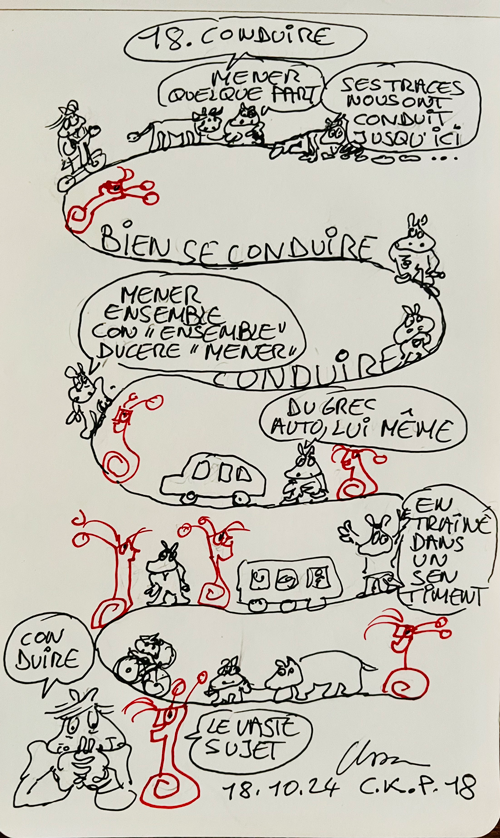 18. CONDUIRE
MENER
QUELQUE PART
SES TRACES
NOUS ONT
CONDUIT
JUSQU'ICI
...
BIEN SE CONDUIRE
MENER
ENSEMBLE
CON "ENSEMBLE"
DUCERE "MENER"
CONDUIRE
DU GREC
AUTO, LUI MÊME
EN
TRAÎNE
DANS
UN
SEN
TIMENT
CON
DUIRE
LE VASTE
SUJET
18.10.24 C.K.P. 18